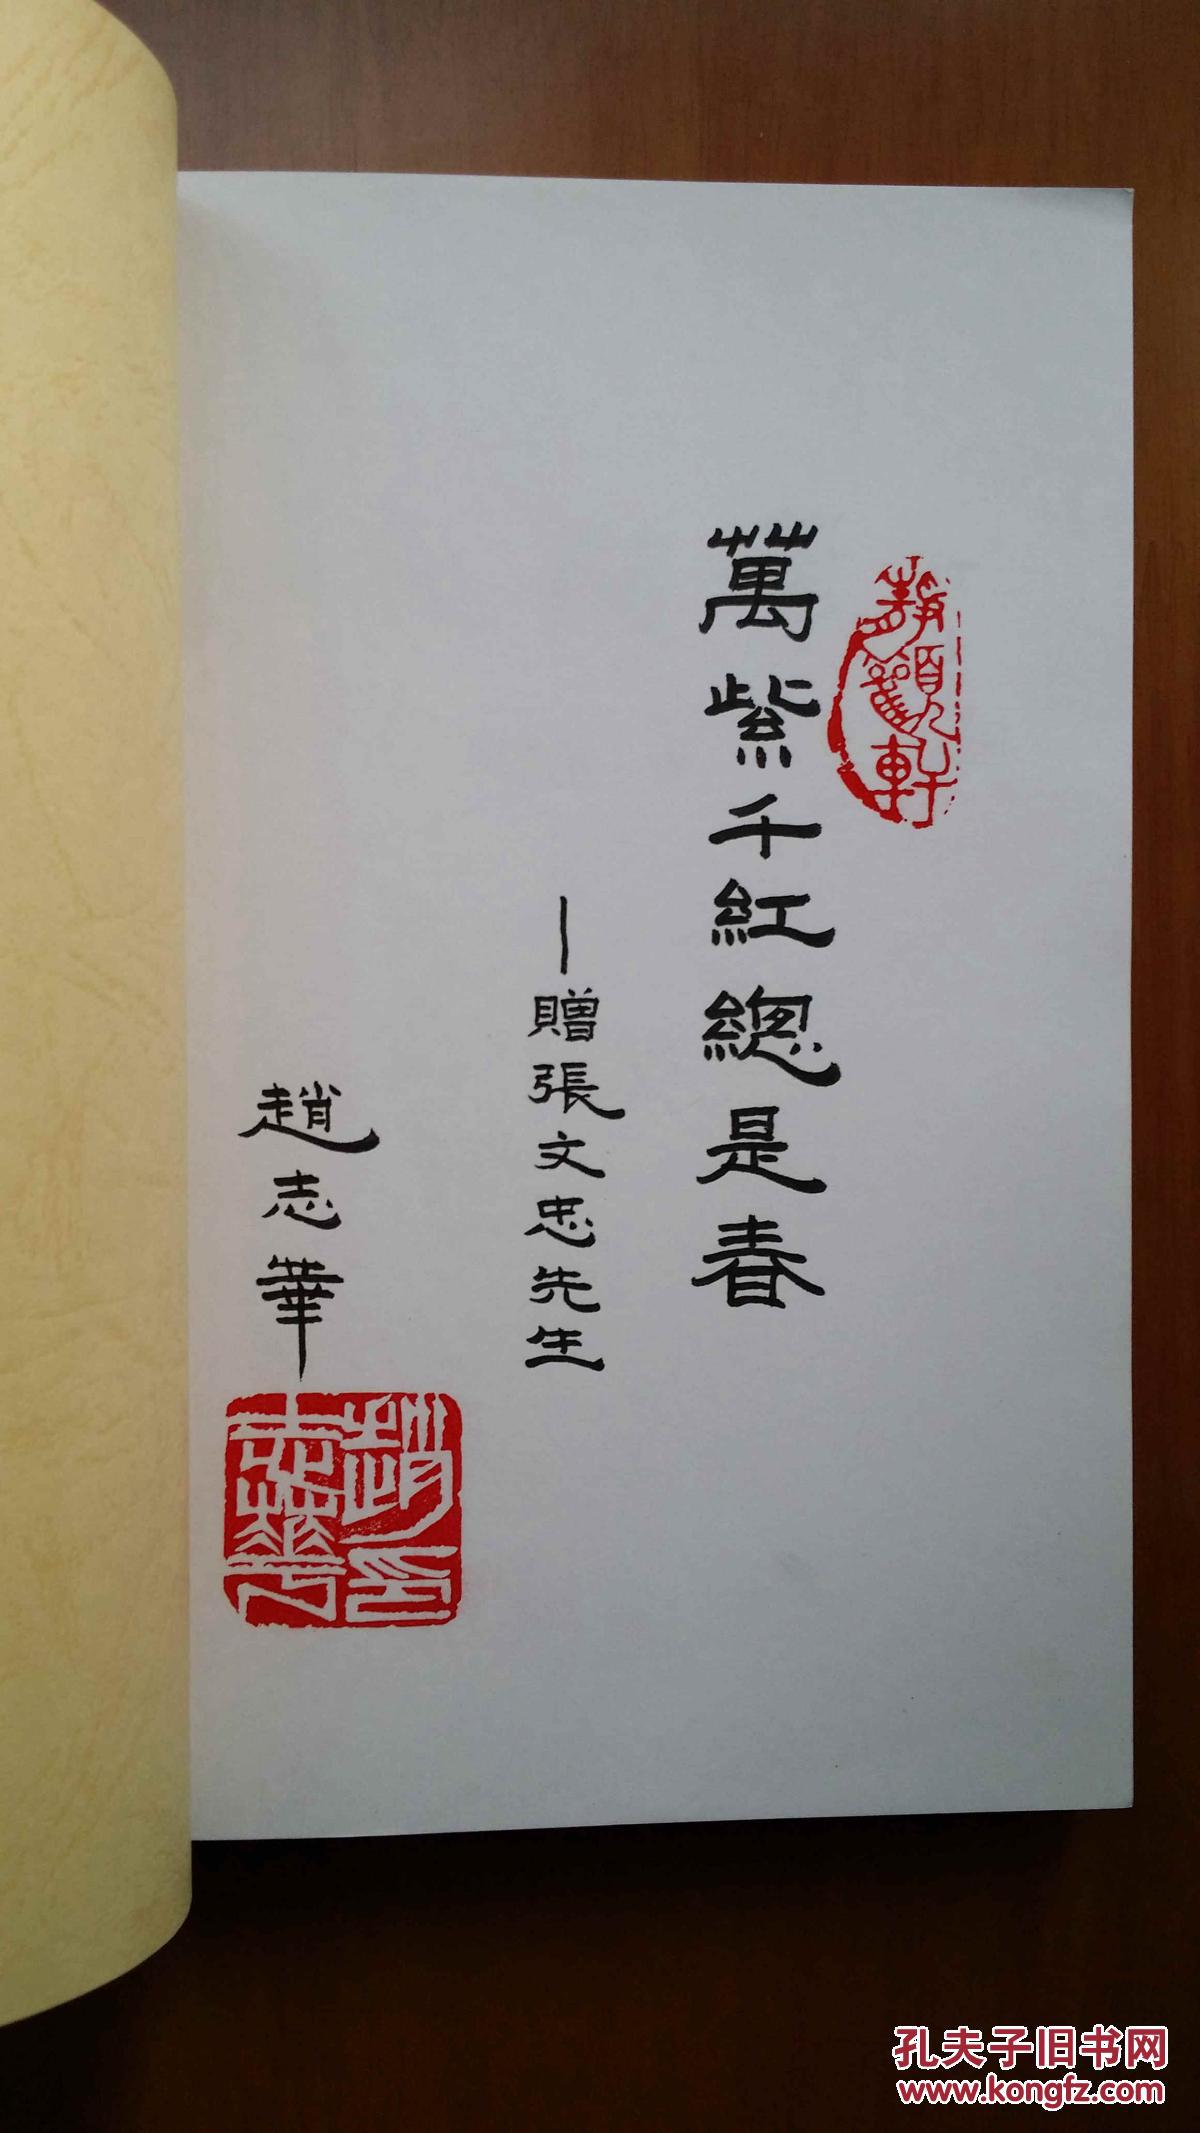 萬紫千紅總是春
—贈張文忠先生
趙志華
趙志華印
孔夫子旧书网
www.kongfz.com